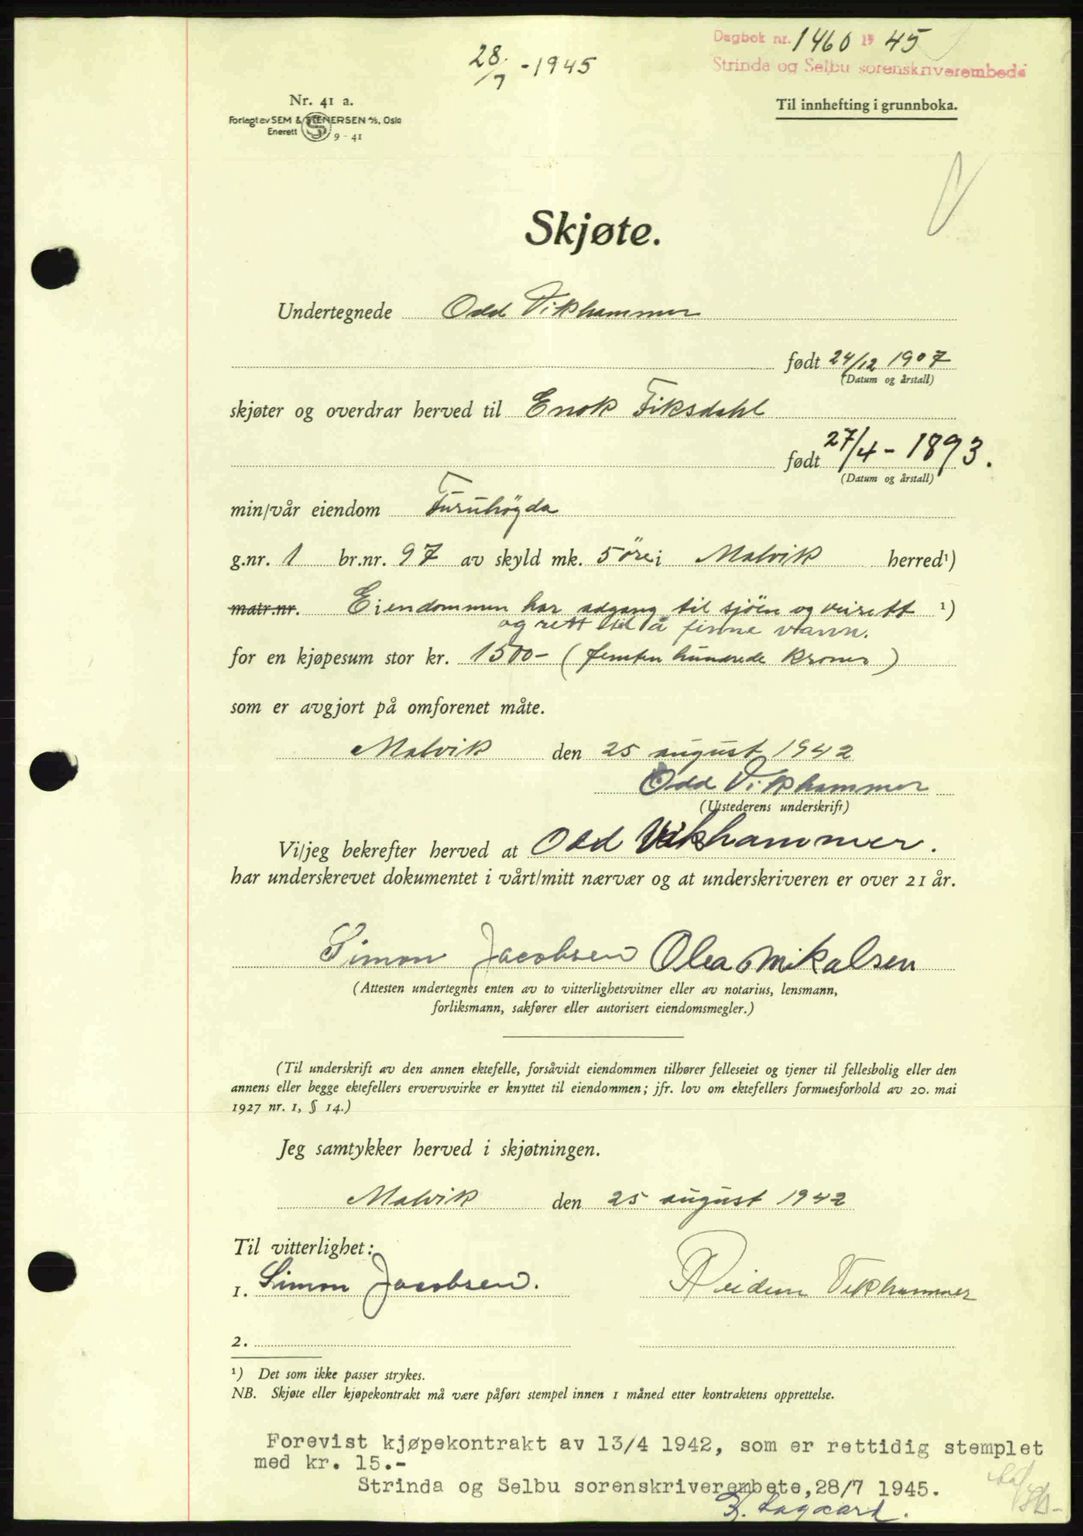 Dagbok nr. 1460 19 45
Strinda og Selbu sorenskriverembede
28/7 - 1945
Nr. 41 a.
Forlagt av SEM & STENERSEN A/S, Oslo
Enerett 9 - 41
Til innhefting i grunnboka.
Skjøte.
Undertegnede Odd Vikhammer
født 24/12 1907
(Datum og årstall)
skjøter og overdrar herved til Enok Fiksdahl
født 27/4 - 1893.
(Datum og årstall)
min/vår eiendom Furuhögda
g.nr. 1 br.nr. 97 av skyld mk. 5 öre i Malvik herred¹)
matr.nr. Eiendommen har adgang til sjöen og veirett ¹)
og rett til å finne vann.
for en kjøpesum stor kr. 1500- (femten hundrede kroner)
som er avgjort på omforenet måte.
Malvik den 25 august 1942
Odd Vikhammer
(Utstederens underskrift)
Vi/jeg bekrefter herved at Odd Vikhammer.
har underskrevet dokumentet i vårt/mitt nærvær og at underskriveren er over 21 år.
Simon Jacobsen Olea Mikalsen
(Attesten undertegnes enten av to vitterlighetsvitner eller av notarius, lensmann,
forliksmann, sakfører eller autorisert eiendomsmegler.)
(Til underskrift av den annen ektefelle, forsåvidt eiendommen tilhører felleseiet og tjener til fellesbolig eller den
annens eller begge ektefellers ervervsvirke er knyttet til eiendommen; jfr. lov om ektefellers formuesforhold av 20. mai
1927 nr. 1, § 14.)
Jeg samtykker herved i skjøtningen.
Malvik den 25 august 1942
Til vitterlighet:
1. Simon Jacobsen. Reidun Vikhammer
2.
¹) Det som ikke passer strykes.
NB. Skjøte eller kjøpekontrakt må være påført stempel innen 1 måned etter kontraktens opprettelse.
Forevist kjøpekontrakt av 13/4 1942, som er rettidig stemplet
med kr. 15.-
Strinda og Selbu sorenskriverembete, 28/7 1945.